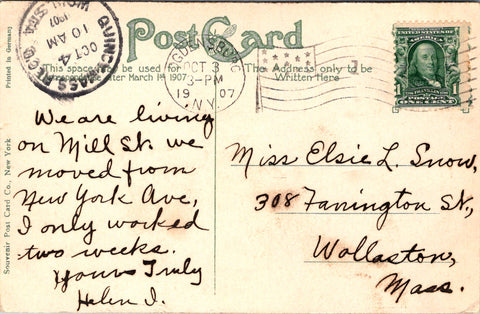 Post Card
This space may be used for
correspondence after March 1st 1907.
The Address only to be
Written Here
Printed in Germany
Souvenir Post Card Co., New York.
QUINCY MASS. REC'D
OCT 4
10 AM
1907
WOLL. STA.
OGDENSBURG
OCT 3
3-PM
19 07
N.Y.
1
POSTAGE
ONE CENT
1
We are living
on Mill St. we
moved from
New York Ave,
I only worked
two weeks.
Yours Truly
Helen I.
Miss Elsie L. Snow,
308 Farrington St,
Wollaston,
Mass.